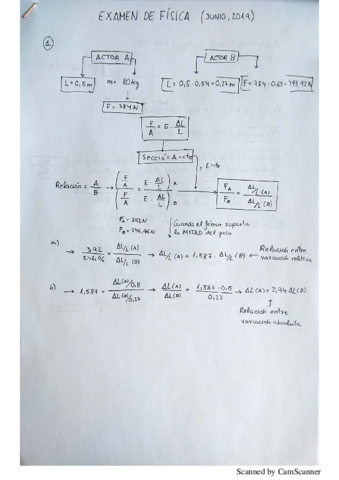 EXAMEN DE FÍSICA (JUNIO, 2019)
①
ACTOR A
ACTOR B
L = 0,5m
m = 80kg
L = 0,5 · 0,54 = 0,27m
F = 784 · 0,63 = 493,92N
F = 784N
F/A = E · ΔL/L
Sección A = cte
E = cte
Relación = A/B → (F/A / F/A = E · ΔL/L / E · ΔL/L) A B
F_A/F_B = ΔL/L (A) / ΔL/L (B)
F_A = 392N
F_B = 246,96N
Cuando el fémur soporta
la MITAD del peso
a) → 392/246,96 = ΔL/L (A) / ΔL/L (B) → ΔL/L (A) = 1,587 · ΔL/L (B) ← Relación entre
variación relativa
b) → 1,587 = ΔL(A)/0,5 / ΔL(B)/0,27 → ΔL(A)/ΔL(B) = 1,587 · 0,5 / 0,27 → ΔL(A) = 2,94 ΔL(B)
Relación entre
variación absoluta
Scanned by CamScanner